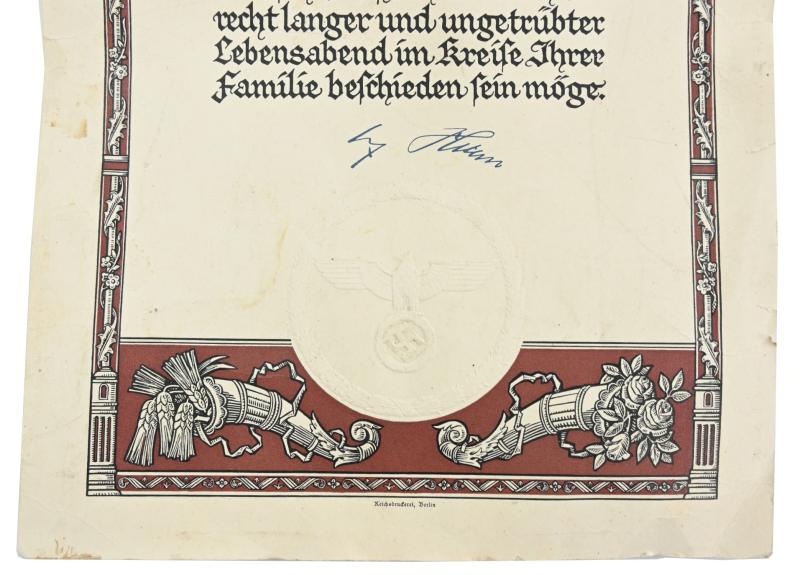 recht langer und ungetrübter
Lebensabend im Kreise Ihrer
Familie beschieden sein möge.
Reichsdruckerei, Berlin